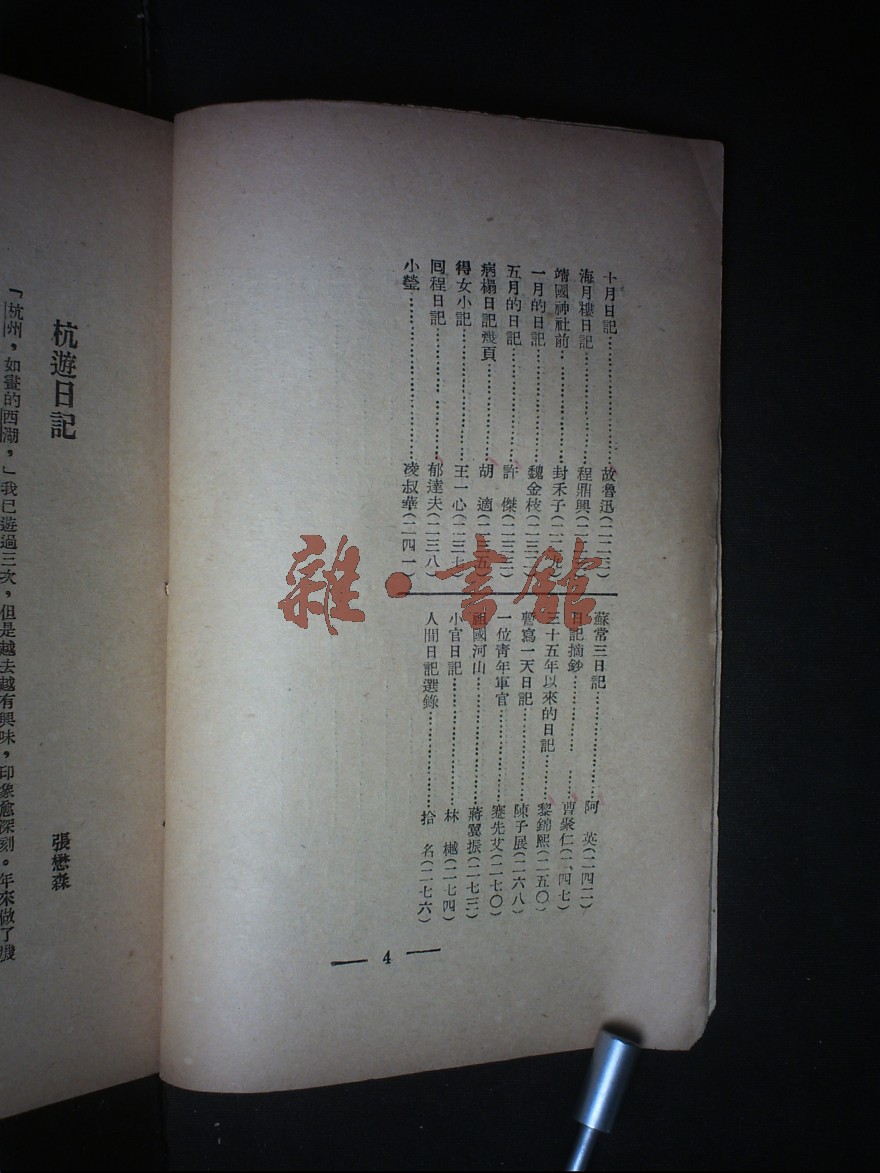 十月日記……故魯迅(二二三)
海月樓日記……程鼎興
靖國神社前……封禾子
一月的日記……魏金枝
五月的日記……許 傑(二三三)
病榻日記殘頁……胡 適(二三五)
得女小記……王一心(二三七)
囘程日記……郁達夫(二三八)
小瑩……凌叔華(二四一)
蘇常三日記……阿 英(二四二)
日記摘鈔……曹聚仁(二四七)
三十五年以來的日記……黎錦熙(二五〇)
暫寫一天日記……陳子展(二六八)
一位靑年軍官……蹇先艾(二七〇)
祖國河山……蔣翼振(二七三)
小官日記……林 樾(二七四)
人間日記選錄……拾 名(二七六)
— 4 —
杭遊日記
張懋森
「杭州,如畫的西湖,」我已遊過三次,但是越去越有興味,印象愈深刻。年來做了
雜·書館